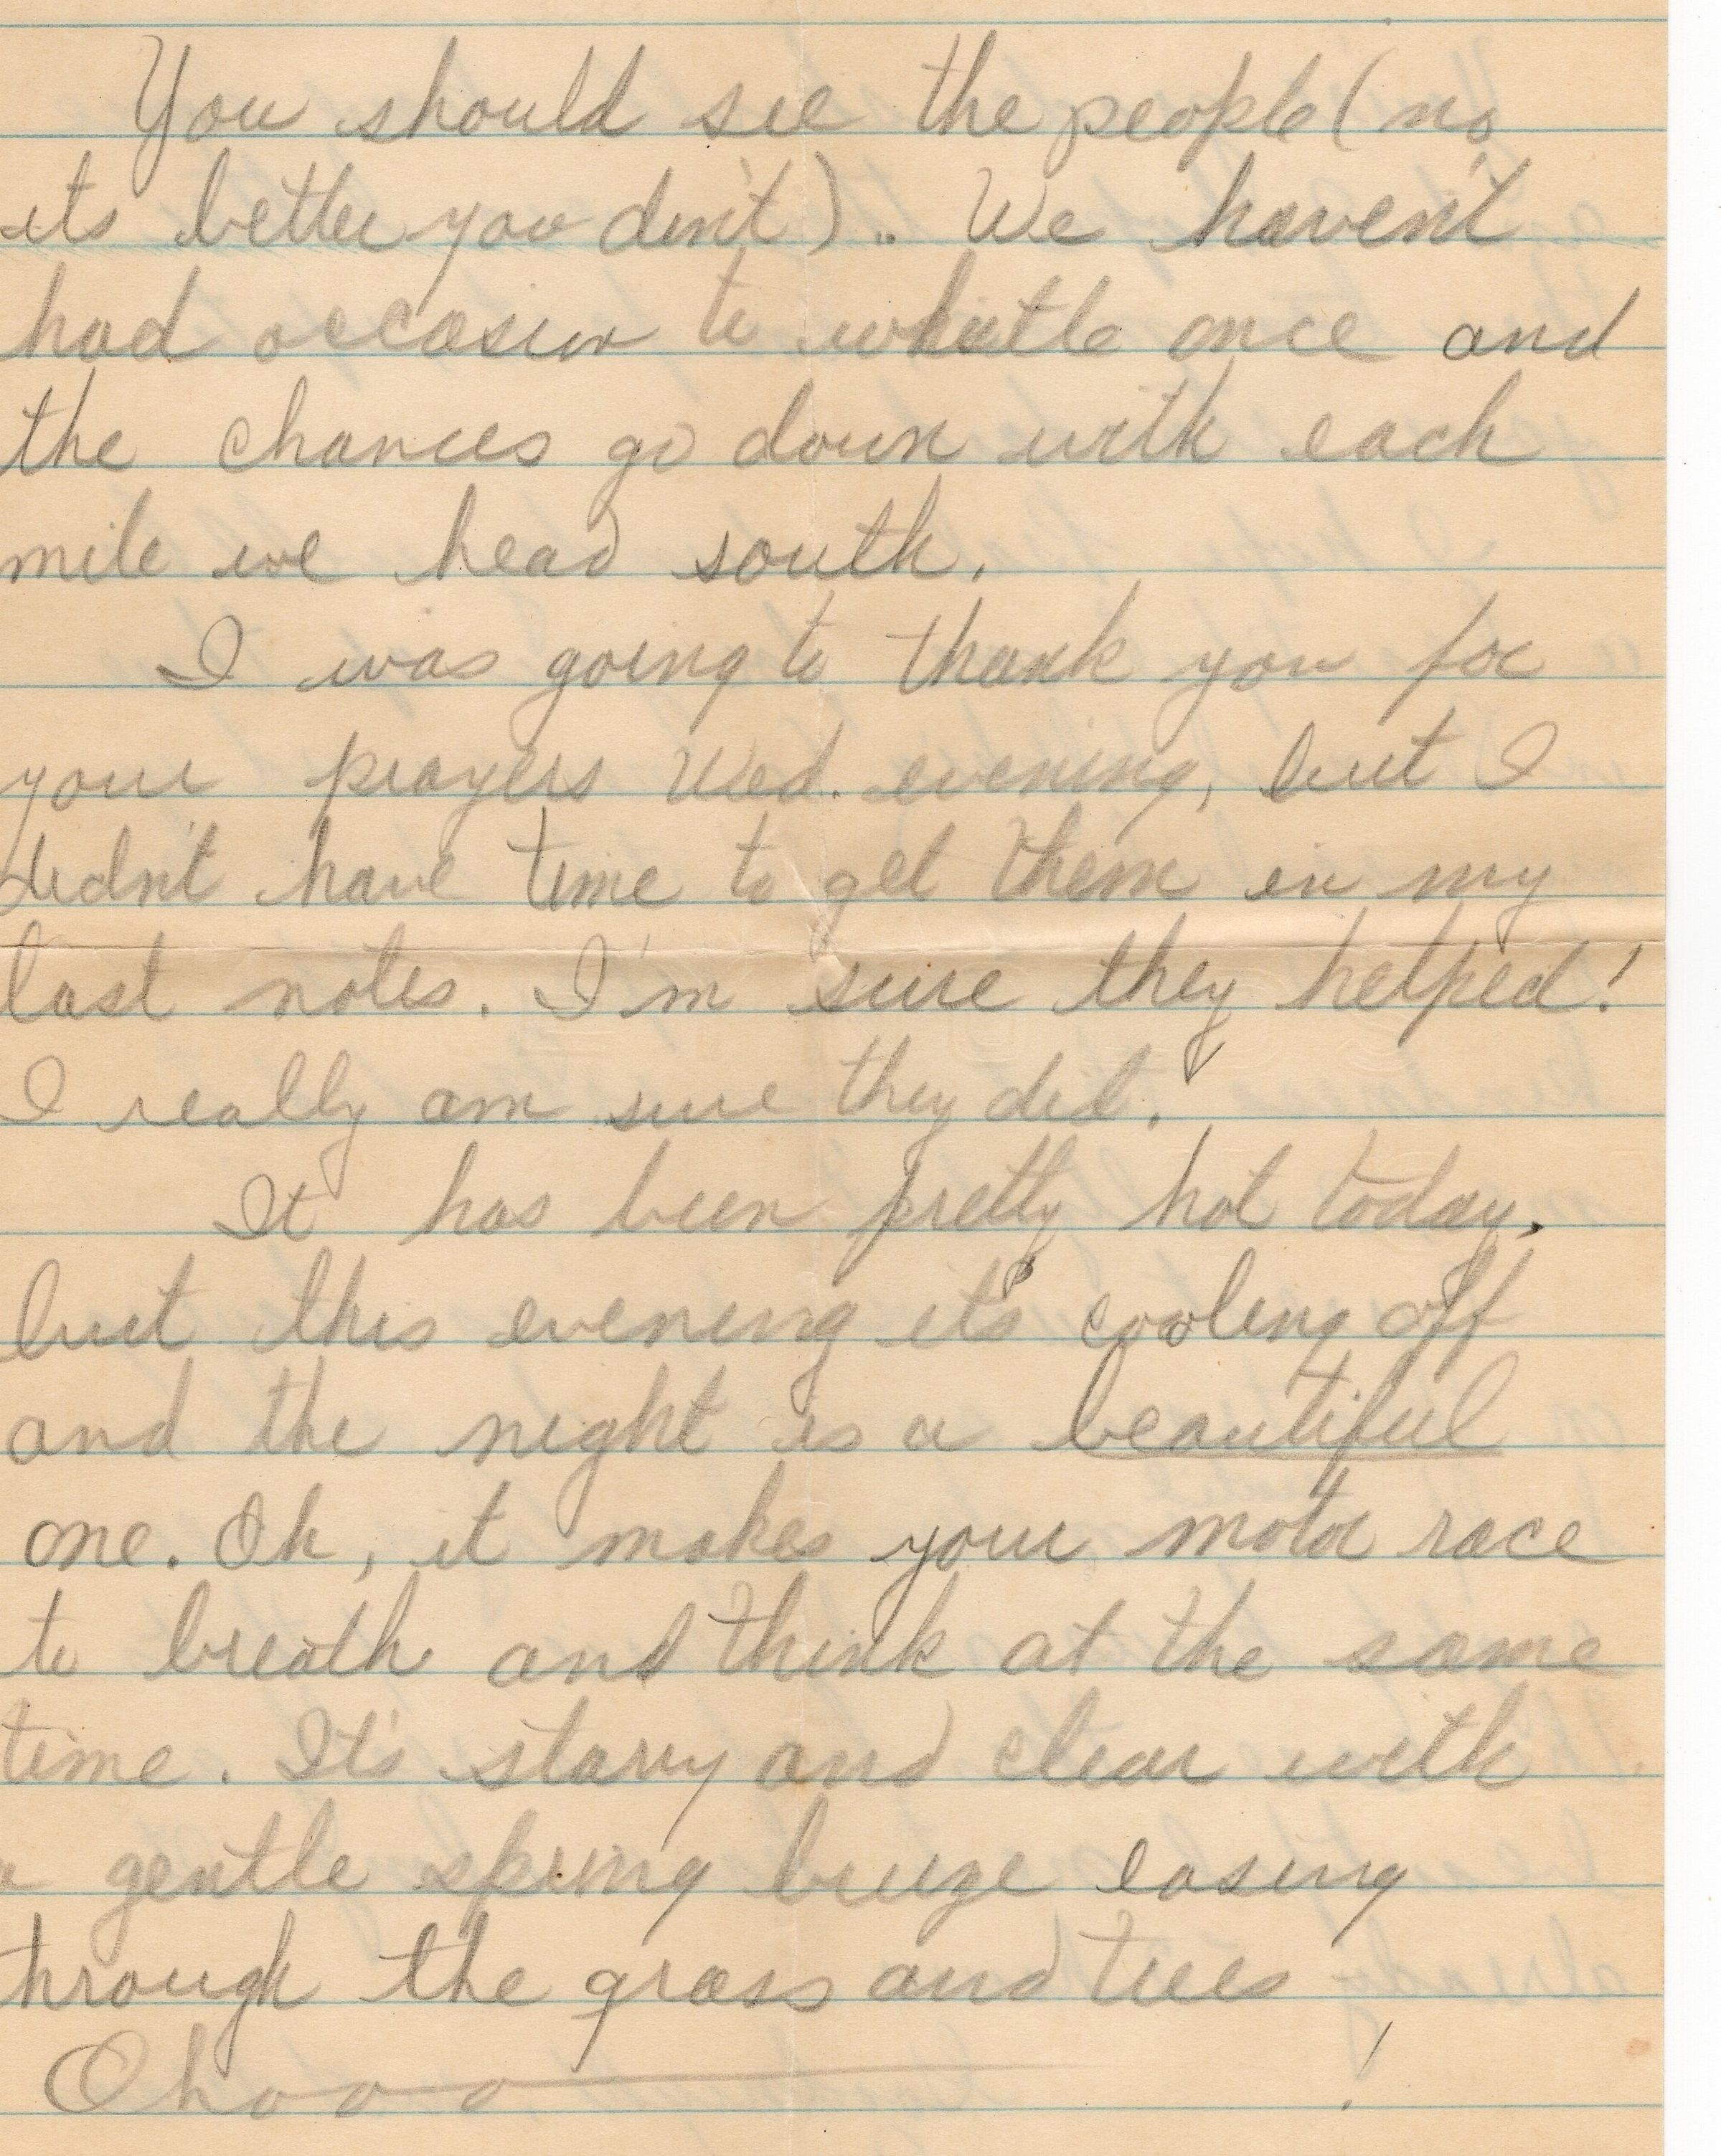 You should see the people (no
its better you don't).. We haven't
had occasion to whistle once and
the chances go down with each
mile we head south.
I was going to thank you for
your prayers Wed. evening, but I
didn't have time to get them in my
last notes. I'm sure they helped!
I really am sure they did.
It has been pretty hot today,
but this evening it's cooling off
and the night is a beautiful
one. Oh, it makes your motor race
to breath and think at the same
time. It's starry and clear with
a gentle spring breeze easing
through the grass and trees
Ohooo !